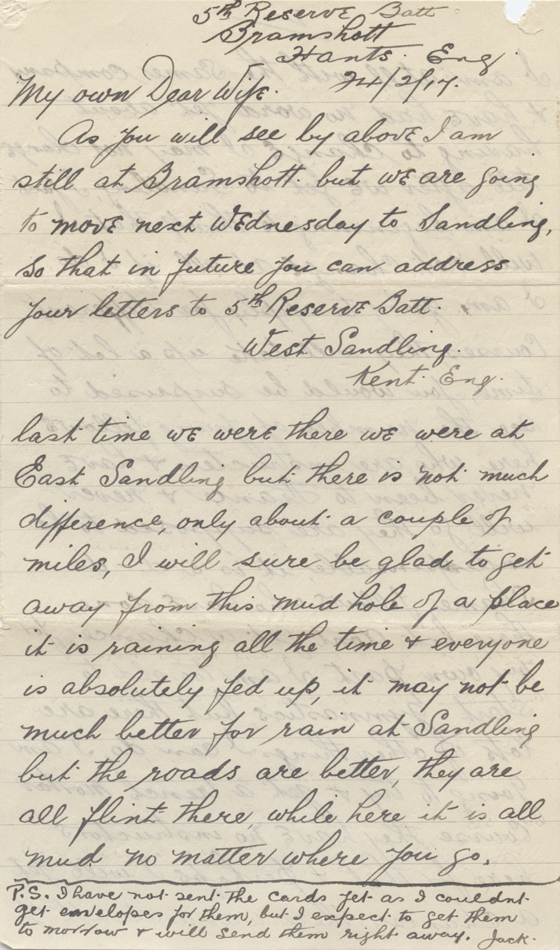 5th Reserve Batt
Bramshott
Hants. Eng.
24/2/17.
My own Dear Wife.
As you will see by above I am
still at Bramshott. but we are going
to move next Wednesday to Sandling,
so that in future you can address
your letters to 5th Reserve Batt.
West Sandling.
Kent. Eng.
last time we were there we were at
East Sandling but there is not much
difference, only about a couple of
miles, I will sure be glad to get
away from this mud hole of a place
it is raining all the time & everyone
is absolutely fed up, it may not be
much better for rain at Sandling
but the roads are better, they are
all flint there, while here it is all
mud no matter where you go.
P.S. I have not sent the cards yet as I couldnt
get envelopes for them, but I expect to get them
to morrow & will send them right away. Jack.